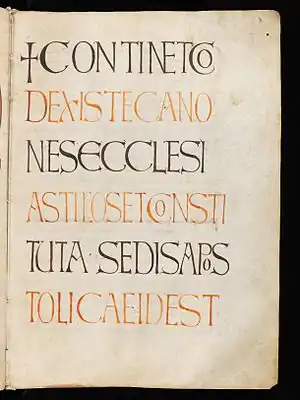 ✝CONTINETCO
DEX·ISTECANO
NESECCLESI
ASTITOSETCONSTI
TUTA·SEDISAPOS
TOLICAEIDEST